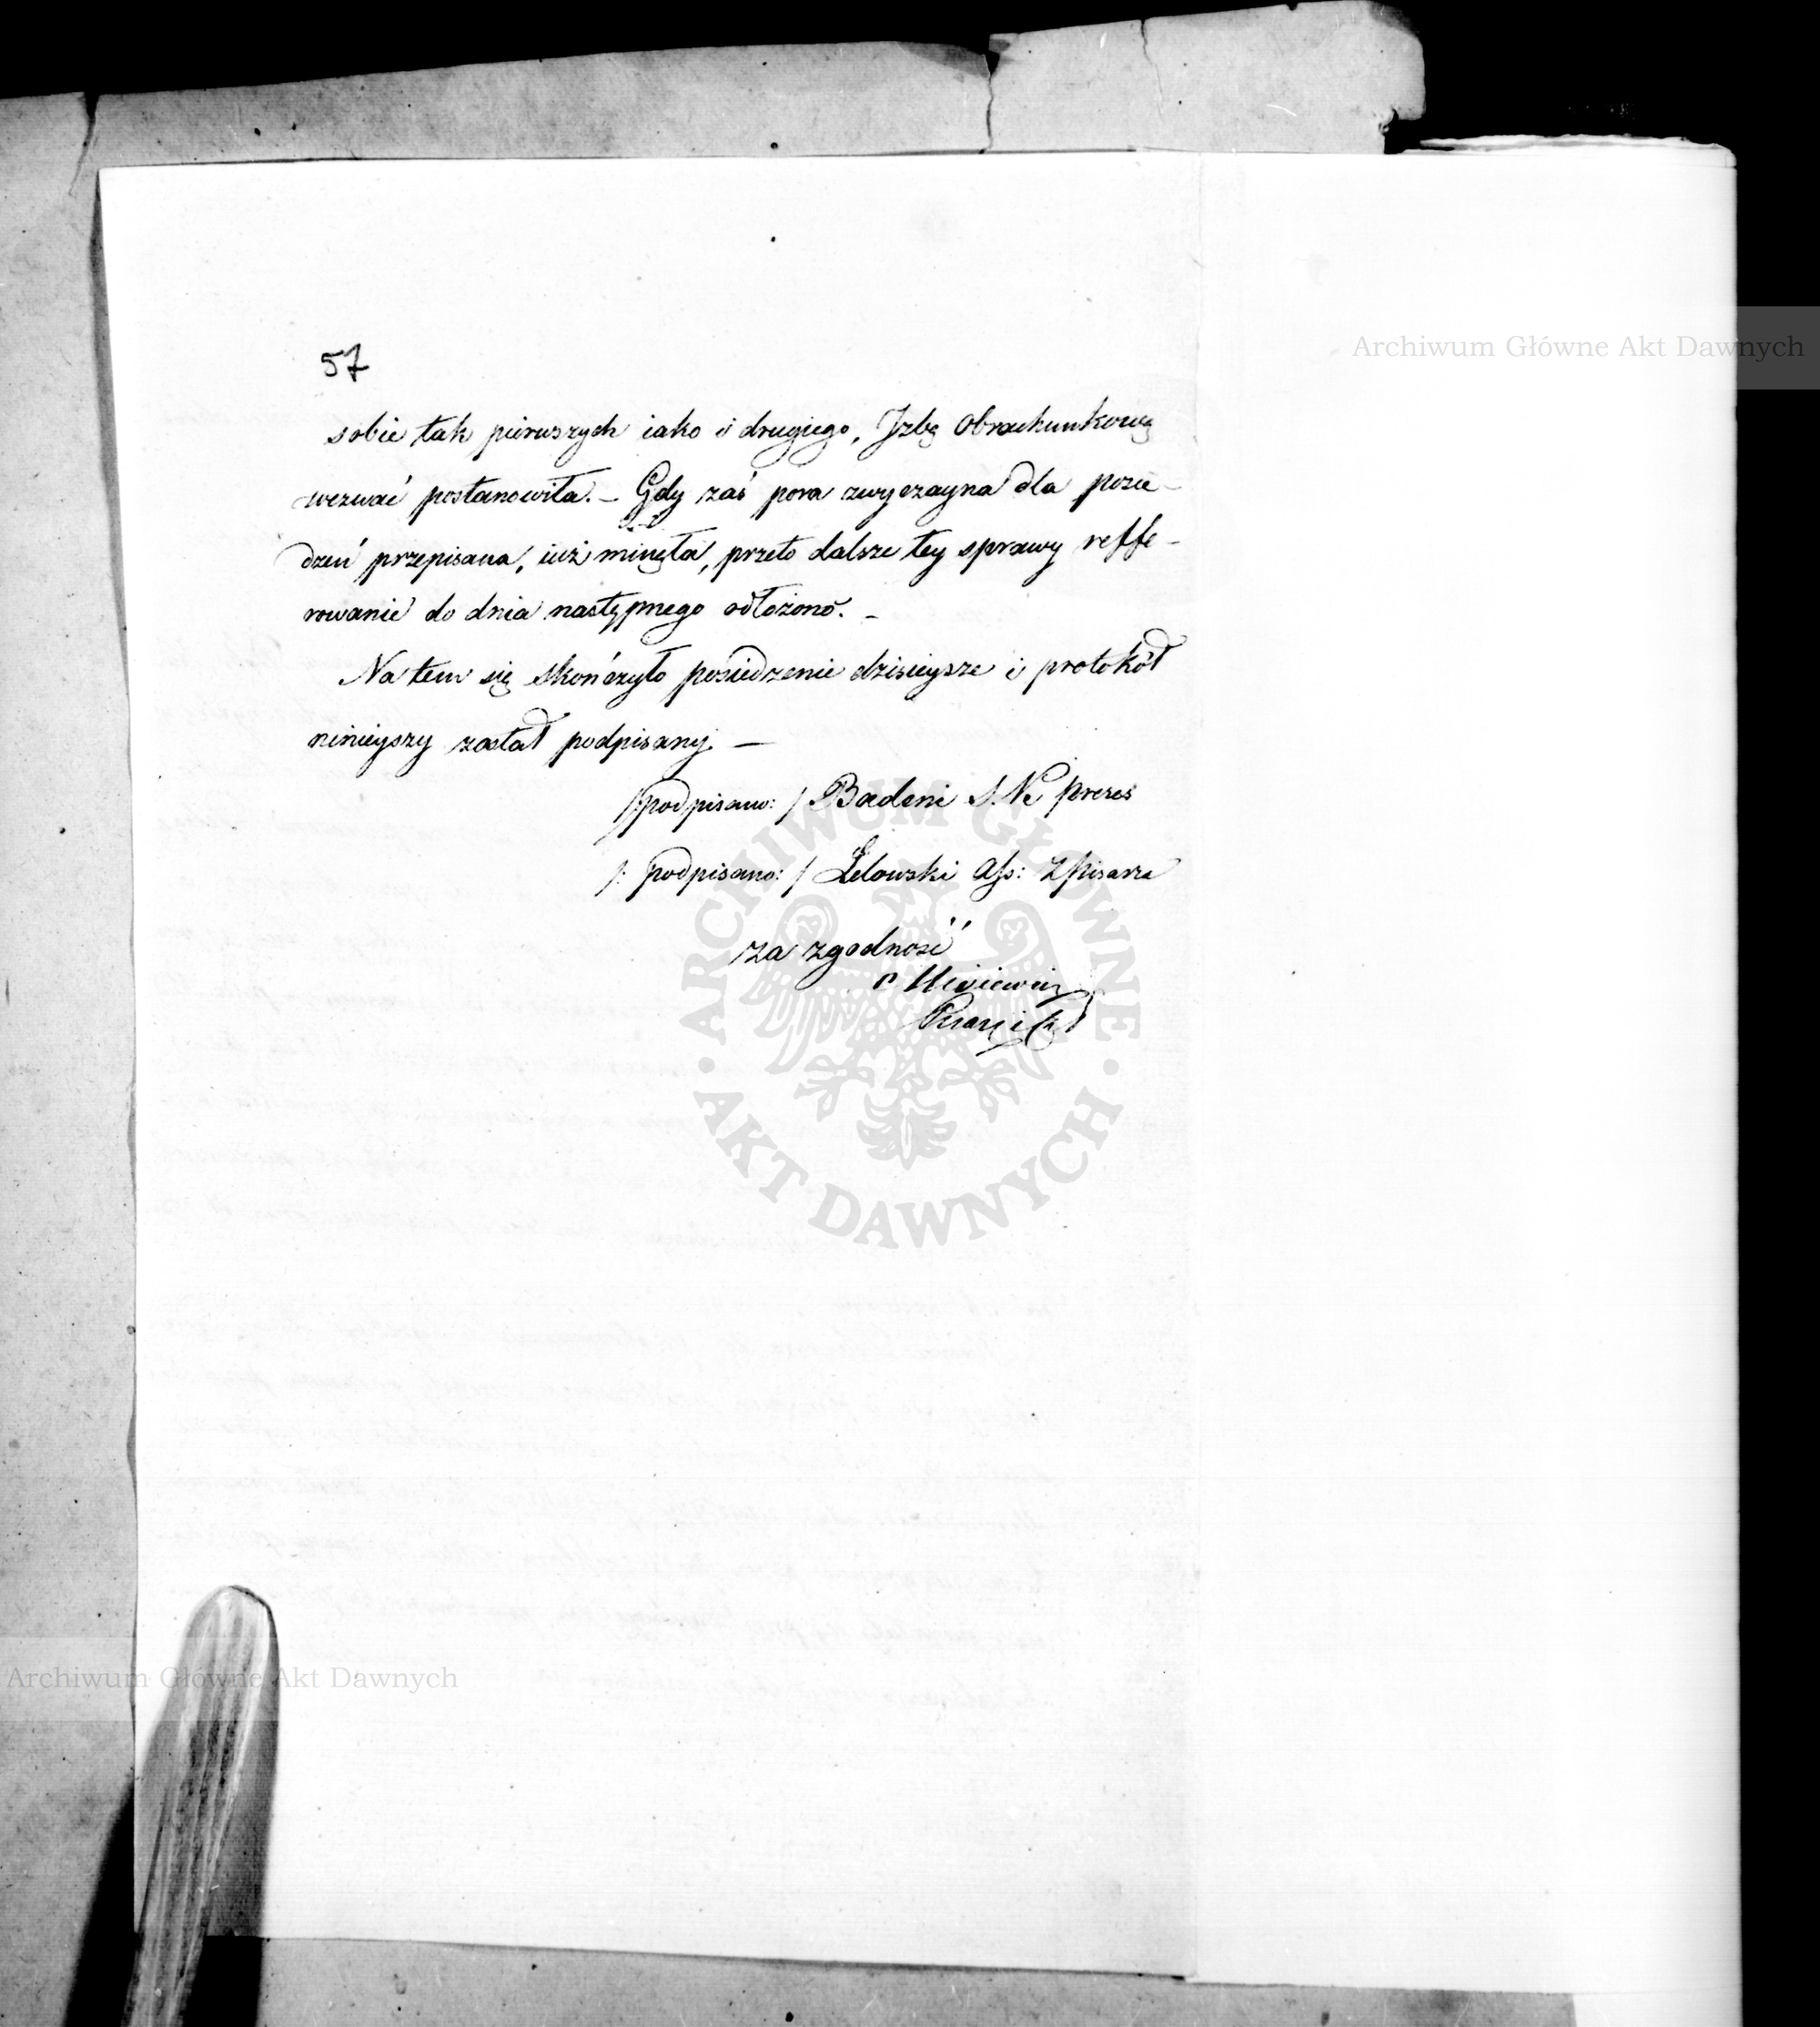 57
sobie tak pierwszych iako i drugiego, Jzbę Obrachunkową
wezwać postanowiła. – Gdy zaś pora zwyczayna dla posie-
dzeń przepisana, iuż minęła, przeto dalsze tey sprawy reffe-
rowanie do dnia następnego odłożono. –
Na tem się skończyło posiedzenie dzisieysze i protokół
ninieyszy został podpisany. —
/:podpisano:/ Badeni S. N. Prezes
/:podpisano:/ Lelowski Ass: Z Pisarza
za zgodność
Pisarz
Archiwum Główne Akt Dawnych
ARCHIWUM GŁÓWNE
AKT DAWNYCH
Archiwum Główne Akt Dawnych